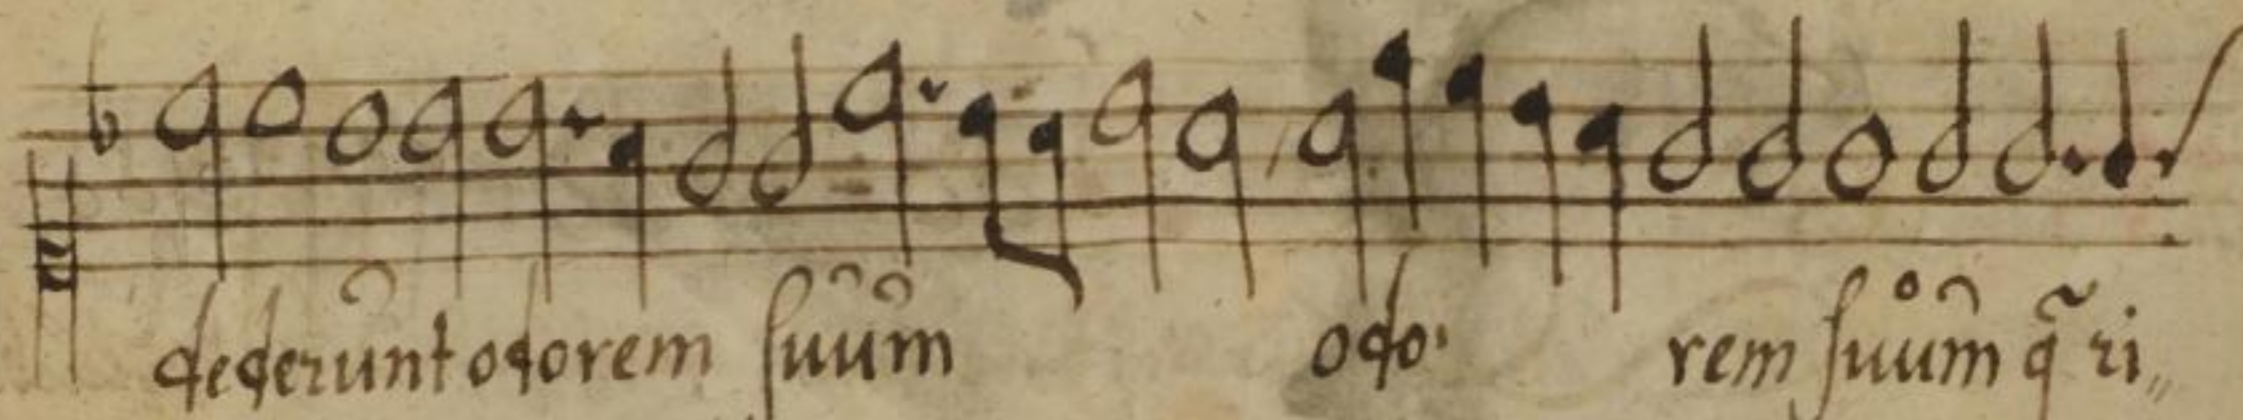 dederunt odorem suum odo rem suum q̃ ri